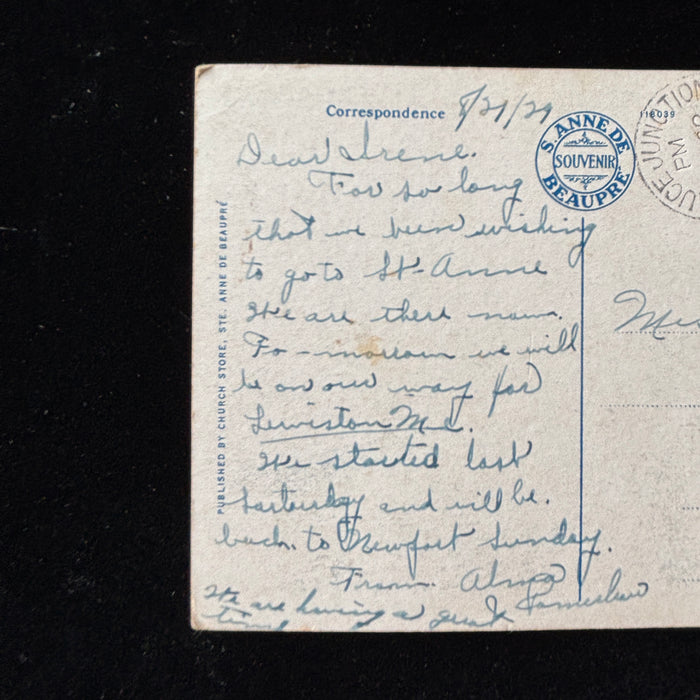 Correspondence 8/21/29
S. ANNE DE
SOUVENIR
BEAUPRÉ
118039
UCE JUNCTION
PM
Dear Irene.
For so long
that we been wishing
to go to St-Anne
We are there now.
To-morrow we will
be on our way for
Lewiston Me.
We started last
Saturday and will be.
back. to Newport Sunday.
From. Alma
We are having a
time
PUBLISHED BY CHURCH STORE, STE. ANNE DE BEAUPRÉ